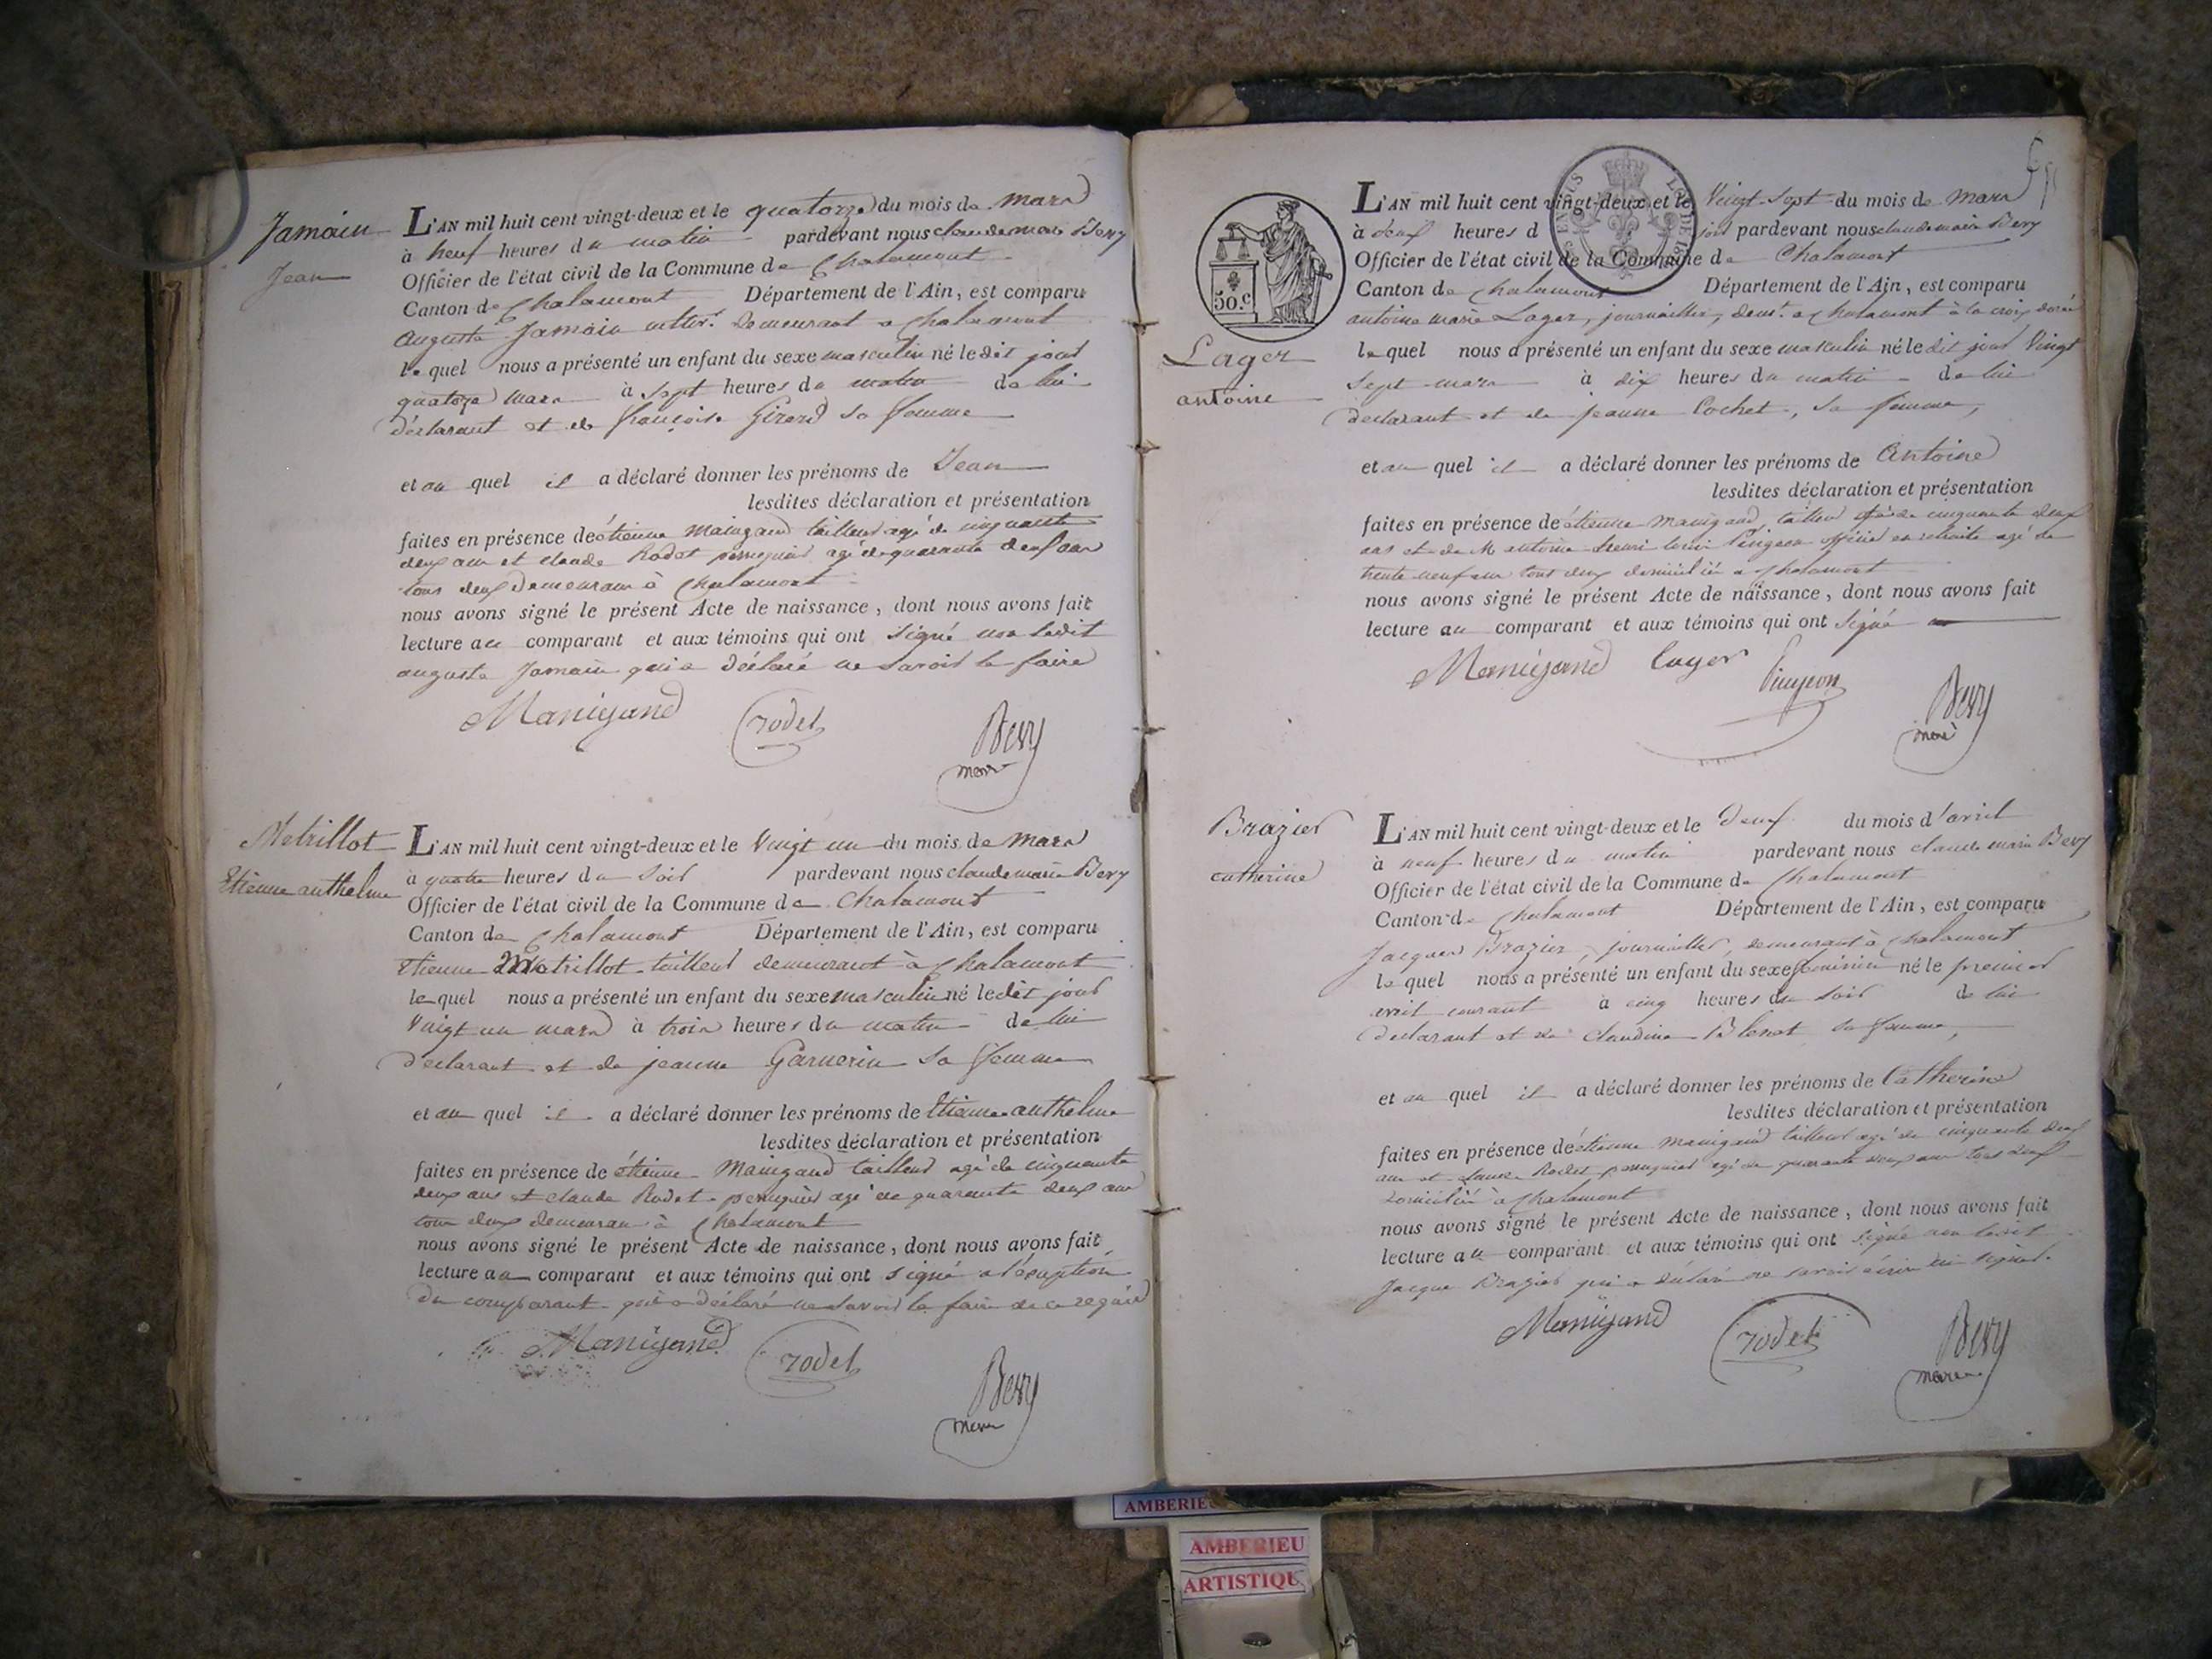 Jamain
Jean
L'AN mil huit cent vingt-deux et le quatorze du mois de mars
à neuf heures du matin pardevant nous claude marie Bevy
Officier de l'état civil de la Commune de Chalamont
Canton de Chalamont Département de l'Ain, est comparu
Auguste Jamain demeurant a Chalamont
le quel nous a présenté un enfant du sexe masculin né ledit jour
quatorze mars à sept heures du matin de lui
déclarant et de françoise Girard sa femme
et au quel il a déclaré donner les prénoms de Jean
lesdites déclaration et présentation
faites en présence de étienne Manigand tailleur agé de cinquante
deux ans et claude Rodet perruquier agé de quarante deux ans
tous deux demeurans à Chalamont
nous avons signé le présent Acte de naissance, dont nous avons fait
lecture au comparant et aux témoins qui ont signé non ledit
auguste Jamain qui a déclaré ne savoir le faire
Manigand rodet Bevy
maire
Metrillot
Etienne anthelme
L'AN mil huit cent vingt-deux et le Vingt un du mois de mars
à quatre heures du soir pardevant nous claude marie Bevy
Officier de l'état civil de la Commune de Chalamont
Canton de Chalamont Département de l'Ain, est comparu
Etienne Metrillot tailleur demeurant à Chalamont
le quel nous a présenté un enfant du sexe masculin né ledit jour
Vingt un mars à trois heures du matin de lui
déclarant et de jeanne Garnerin sa femme
et au quel il a déclaré donner les prénoms de Etienne anthelme
lesdites déclaration et présentation
faites en présence de étienne Manigand tailleur agé de cinquante
deux ans et claude Rodet perruquier agé de quarante deux ans
tous deux demeurans à Chalamont
nous avons signé le présent Acte de naissance, dont nous avons fait
lecture au comparant et aux témoins qui ont signé a l'exception
du comparant qui a déclaré ne savoir le faire de ce requis
Manigand rodet Bevy
maire
50.c
Lager
antoine
L'AN mil huit cent vingt-deux et le Vingt-sept du mois de mars
à deux heures d soir pardevant nous claude marie Bevy
Officier de l'état civil de la Commune de Chalamont
Canton de Chalamont Département de l'Ain, est comparu
antoine marie Lager, journaillier, demt. a Chalamont à la croix dorée
le quel nous a présenté un enfant du sexe masculin né le dit jour Vingt
sept mars à dix heures du matin de lui
déclarant et de jeanne Cochet, sa femme,
et au quel il a déclaré donner les prénoms de Antoine
lesdites déclaration et présentation
faites en présence de étienne Manigand tailleur agé de cinquante deux
ans et de M antoine henri Pingeon officier en retraite agé de
trente neuf ans tous deux domiciliés a Chalamont
nous avons signé le présent Acte de naissance, dont nous avons fait
lecture au comparant et aux témoins qui ont signé
Manigand Lager Pingeon Bevy
maire
Brazier
catherine
L'AN mil huit cent vingt-deux et le Deux du mois d'avril
à neuf heures du matin pardevant nous claude marie Bevy
Officier de l'état civil de la Commune de Chalamont
Canton de Chalamont Département de l'Ain, est comparu
Jacques Brazier, journaillier, demeurant à Chalamont
le quel nous a présenté un enfant du sexe feminin né le premier
avril courant à cinq heures du soir de lui
déclarant et de Claudine Blenet sa femme,
et au quel il a déclaré donner les prénoms de Catherine
lesdites déclaration et présentation
faites en présence de étienne Manigand tailleur agé de cinquante deux
ans et claude Rodet perruquier agé de quarante deux ans tous deux
domiciliés à Chalamont
nous avons signé le présent Acte de naissance, dont nous avons fait
lecture au comparant et aux témoins qui ont signé non ledit
Jacque Brazier qui a déclaré ne savoir écrire ni signer.
Manigand rodet Bevy
maire
AMBERIEU
AMBERIEU
ARTISTIQUE